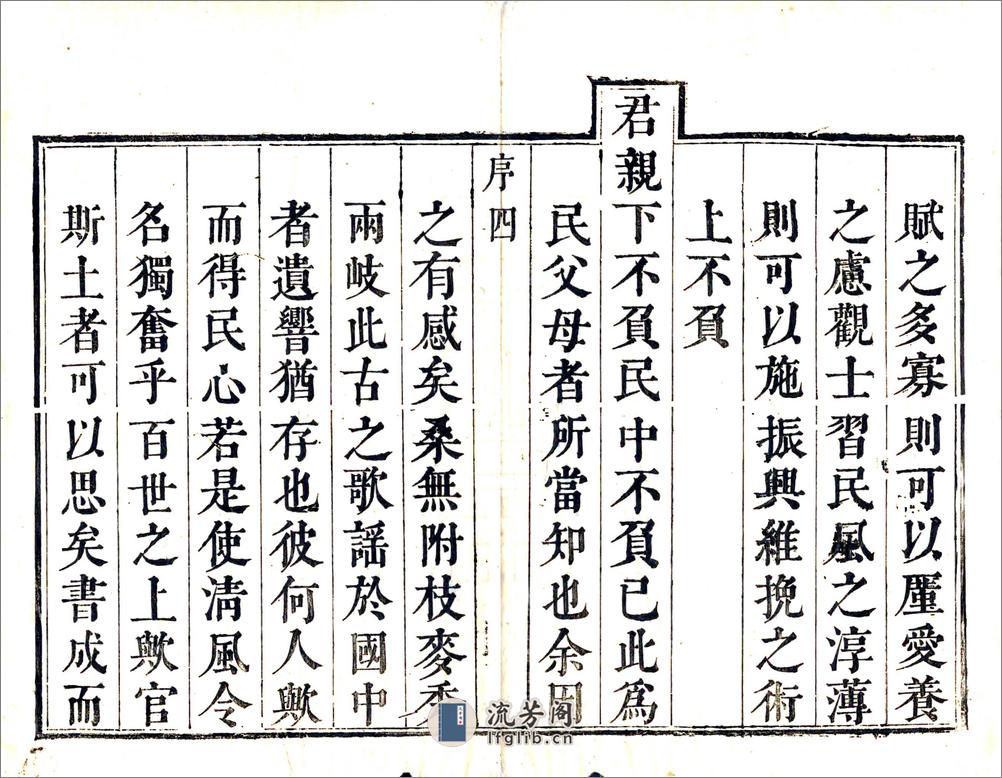 賦之多寡則可以廑愛養
之慮觀士習民風之淳薄
則可以施振興維挽之術
上不負
君親下不負民中不負已此為
民父母者所當知也余因
序 四
之有感矣桑無附枝麥秀
兩岐此古之歌謡於國中
者遺響猶存也彼何人歟
而得民心若是使清風令
名獨奮乎百世之上歟官
斯土者可以思矣書成而
流芳阁
lfglib.cn